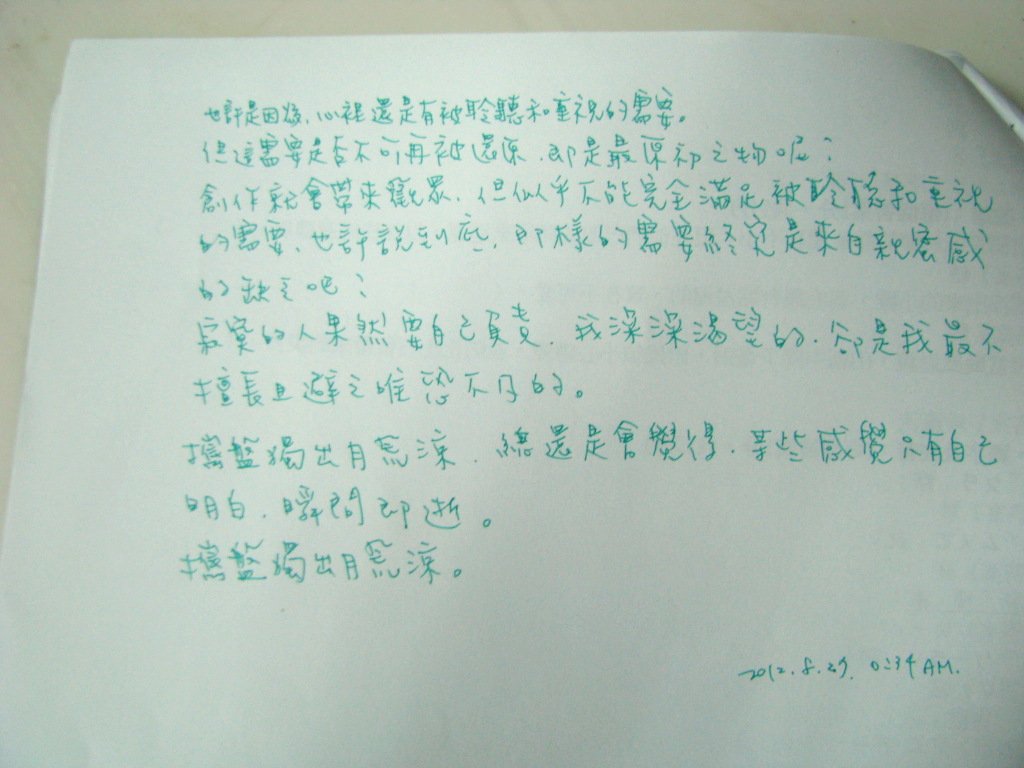 也許是因為,心裡還是有被聆聽和重視的需要。
但這需要是否不可再被還原,即是最原初之物呢?
創作就會帶來觀眾,但似乎不能完全滿足被聆聽和重視
的需要,也許說到底,那樣的需要終究是來自親密感
的缺乏吧?
寂寞的人果然要自己負責,我深深渴望的,卻是我最不
擅長且避之唯恐不及的。
攜盤獨出月荒涼,總還是會覺得,某些感覺只有自己
明白,瞬間即逝。
攜盤獨出月荒涼。
2012.8.29. 0:34 AM.